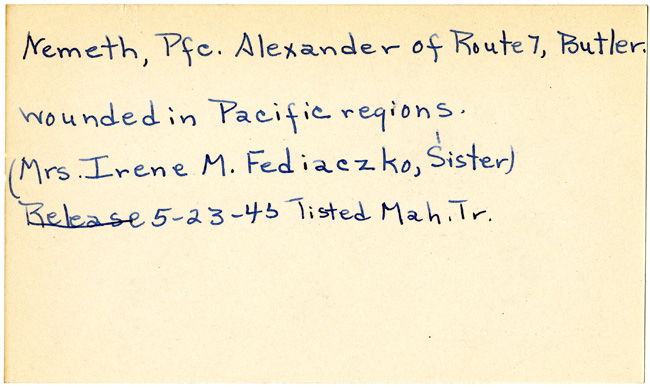 Nemeth, Pfc. Alexander of Route 7, Butler.
wounded in Pacific regions.
(Mrs. Irene M. Fediaczko, Sister)
Release 5-23-45 Tisted Mah. Tr.